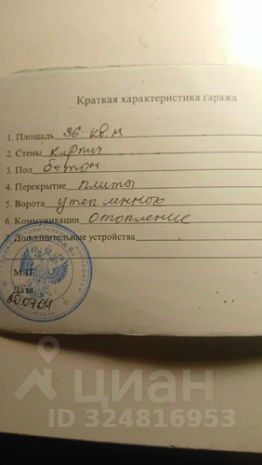 Краткая характеристика гаража
1. Площадь 36 кв м
2. Стены кирпич
3. Пол бетон
4. Перекрытие плиты
5. Ворота утепленною
6. Коммуникации отопление
7. Дополнительные устройства
М.П.
Дата
циан
ID 324816953